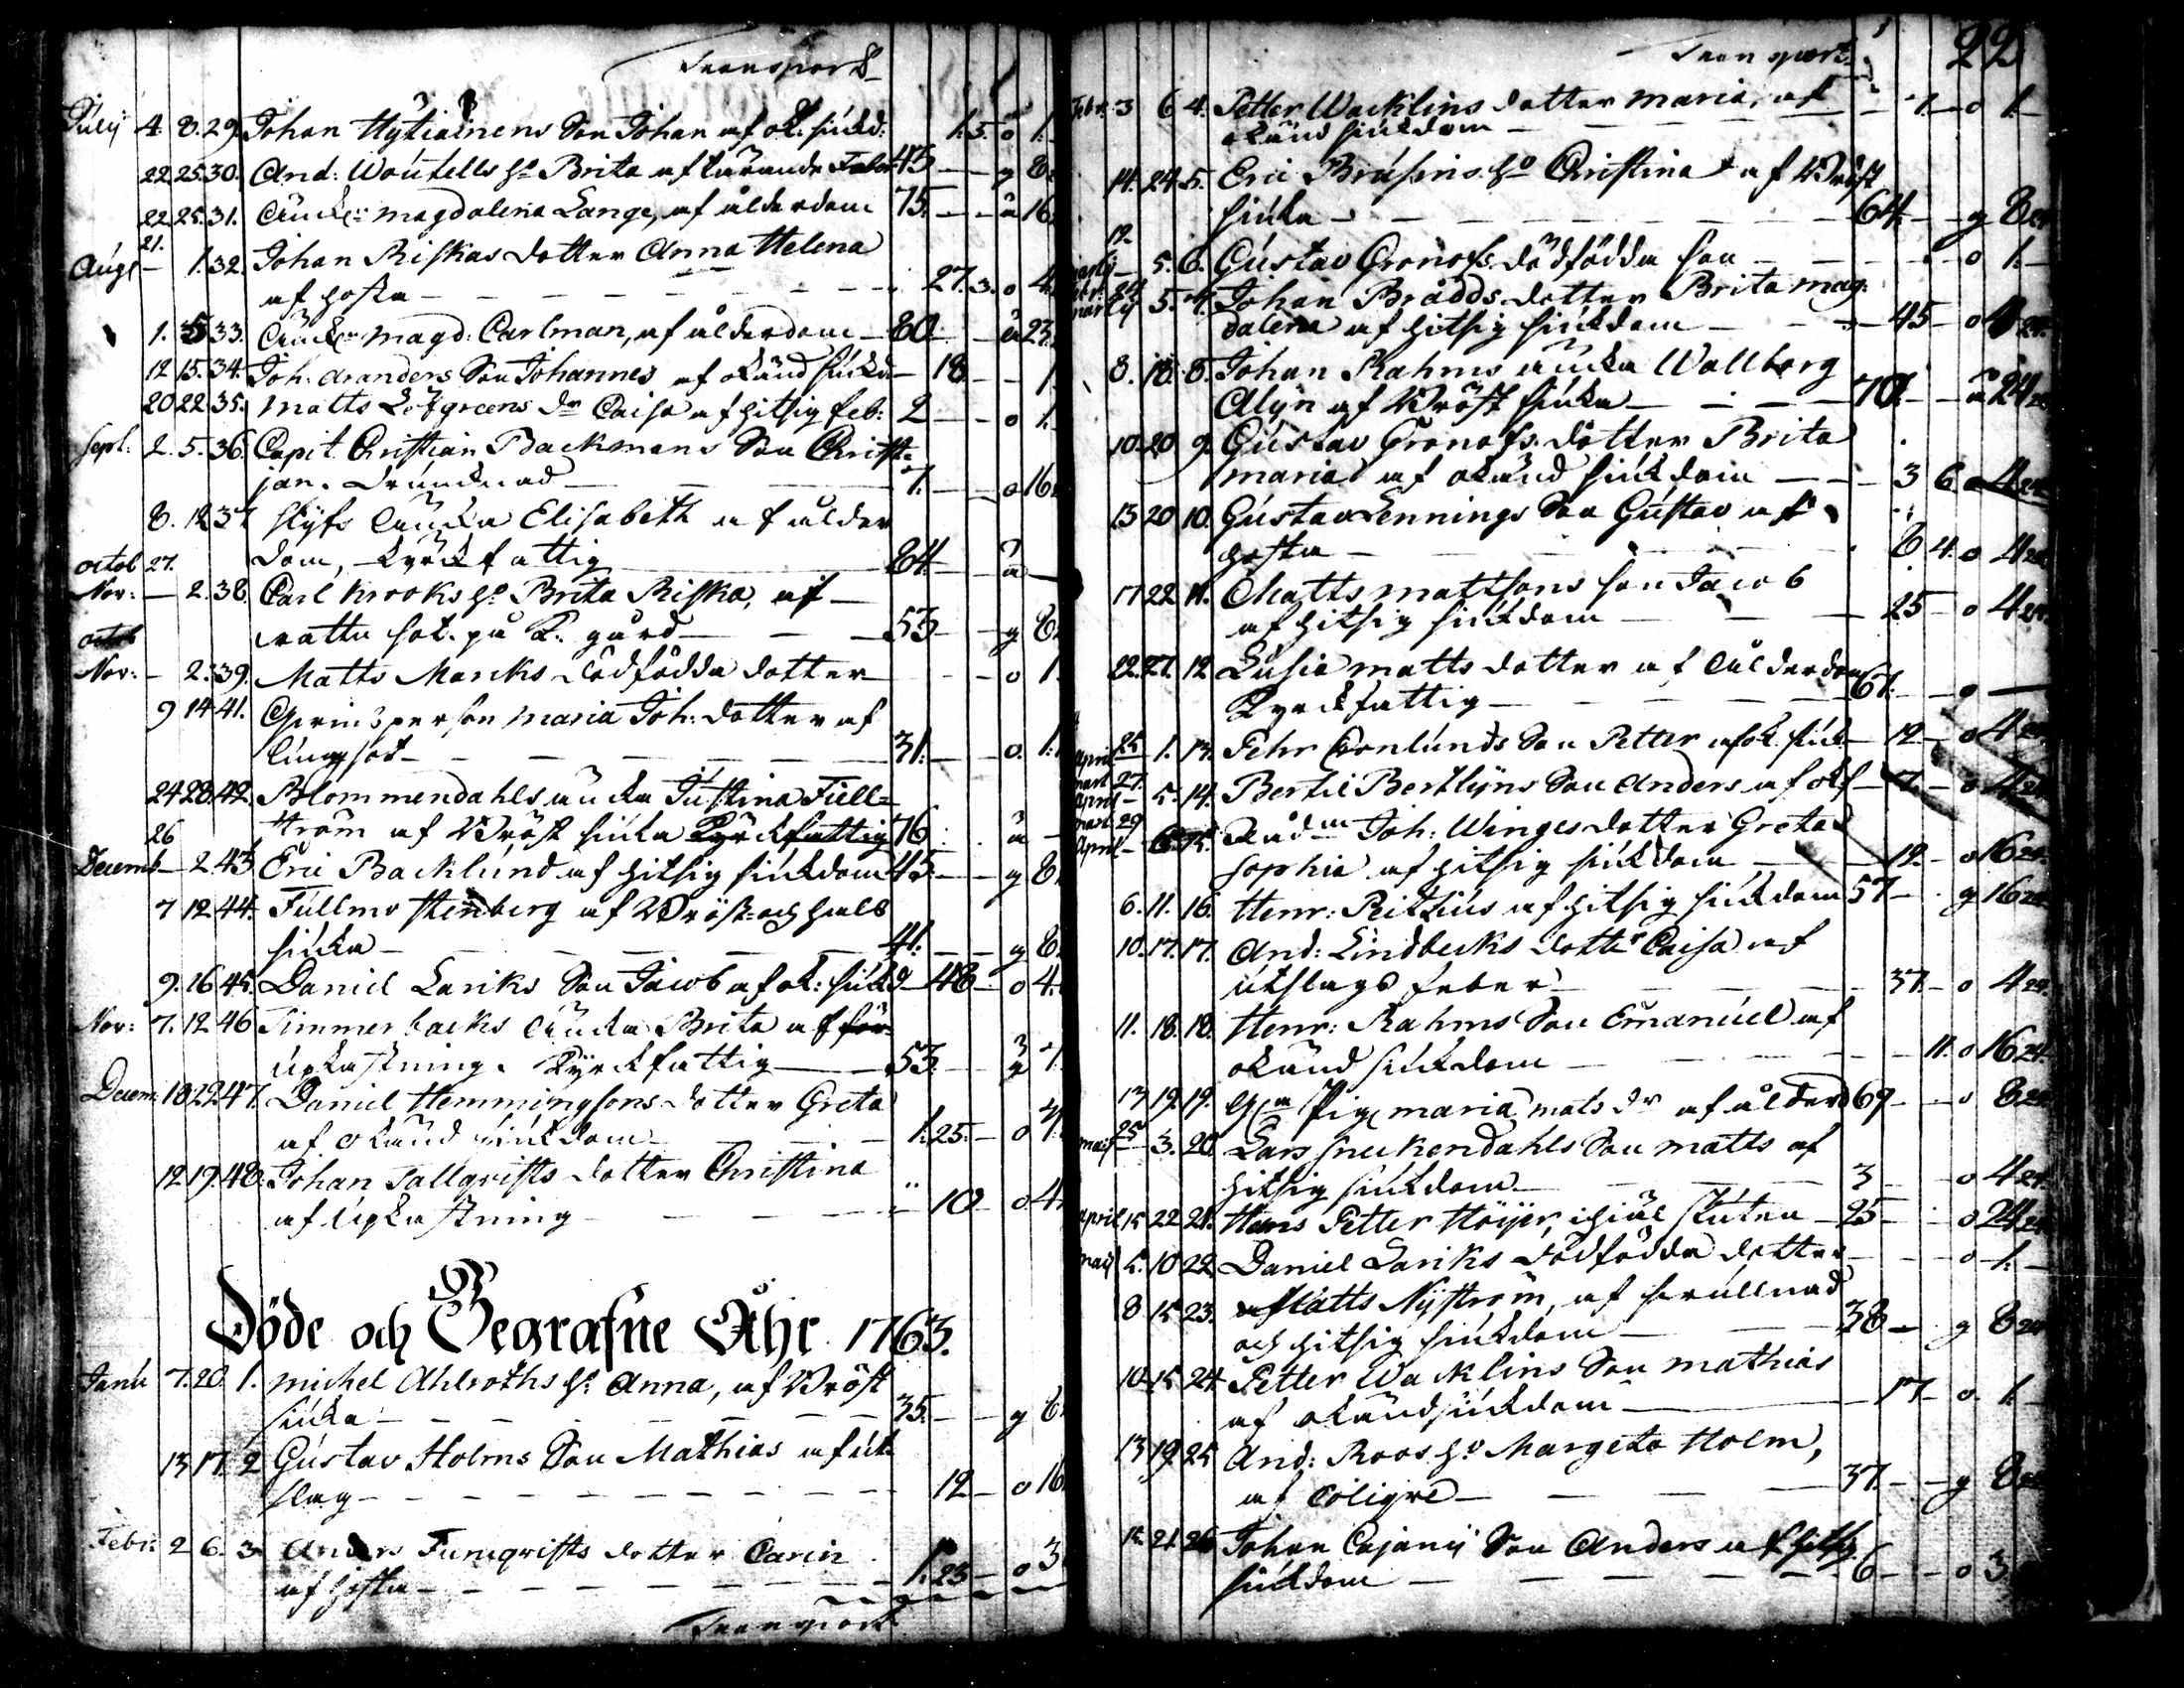 Transport
Julij 4. 8. 29. Johan Hytiäinens Son Johan af ok: siukd: 1. 5. o 1.
22 25. 30. And: Woutells h:o Brita af tärande Feber 45 — g 8.
22 25. 31. Änck: Magdalena Lange, af ålderdom 75. — ä 16.
21.
Aug: — 1. 32. Johan Riskas dotter Anna Helena
af hosta — 27. 3. o 4.
1. 5 33. Änck: Magd: Carlman, af ålderdom — 80 — ä 23.
12 15. 34. Joh: Aranders Son Johannes af okänd siukd — 18 — 1.
20 22 35. Matts Löfgreens dr Caisa af hitsig feb: 2 — o 1.
Sept: 2. 5. 36. Capit Christian Backmans Son Christ=
jan. Drunknad — 7. — o 16.
8. 12 37 Änka Elisabeth af ålder
octob 27. dom, kyrckfattig 84. — ä —
Nov: — 2. 38. Carl Krooks h:o Brita Riska, af
octob rattu sot. på K. gård — 53 — g 8.
Nov: — 2. 39. Matts Mariks dödfödda dotter — o 1.
9 14 41. Maria Joh: dotter af
lungsot — 31. — o. 1.
24 28. 42. Blommendahls äncka Justina Full=
26 ström af Bröst siuka Kyrckfattig 76 . ä —
Decemb — 2. 43 Eric Backlund af hitsig siukdom 45. — g 8.
7 12 44. Fullmo Stenberg af Bröst- och hals
siuka — 41. — g 8.
9. 16 45. Daniel Lariks Son Jacob af ok: siukd — 48 — o 4.
Nov: 7. 12 46 Timmerbacks Äncka Brita af för-
Upkastning. Kyrckfattig — 53. — g 1.
Decem: 18 22 47. Daniel Hemmingsons dotter Greta
af okänd siukdom — 1. 25. — o
12 19. 48. Johan Tallqvists dotter Christina
af Upkastning — 10 — o 4.
Döde och Begrafne Åhr 1763.
Janu 7. 20 1. Michel Ahlroths h:o Anna, af Bröst
siuka — 35. — g 8.
13 17 2 Gustav Holms Son Mathias af ut
slag — 12 — o 16.
Febr: 2 6. 3 Anders Tunqvists dotter Carin
af hosta — 1. 23 — o 3
Transport
Transport
22
Febr: 3 6 4. Petter Wacklins dotter Maria, af — 7. — o 1. —
okänd siukdom —
14. 24 5. Eric Brusins h:o Christina af Bröst
siuka — 64. — g 8 24
12
Martij — 5. 6. Gustav Gronofs dödfödda son — o 1. —
Febr: 24
Martij 5. 7. Johan Brådds dotter Brita Mag:
dalena af hitsig siukdom — 45 — o 4 24.
8. 18. 8. Johan Rahms äncka Wallborg
Alÿn af Bröst siuka — 70 — ä 24 24
10. 20 9. Gustav Gronofs dotter Brita
Maria af okänd siukdom — 3 6 o 4 24
15 20 10. Gustav Lennings Son Gustav af
hosta — 8 4. o 4 24.
17 22 11. Matts Mattsons son Jacob
af hitsig siukdom — 25 — o 4 24.
22. 27. 12 Lusia Matts dotter af Ålderdom
Kyrckfattig — 67. — o —
25
April — 1. 13. Pehr Cronlunds Son Petter af ok. siuk — 12 — o 4 24
Mart 27.
April — 5. 14. Bertil Bertlÿns Son Anders af ok — 7. — o 4 24
Mart 29
April — 6. 15. Rådm Joh: Winges dotter Greta
Sophia af hitsig siukdom — 12 — o 16 24.
6. 11. 16. Henr: Reitzius af hitsig siukdom 57 — g 16 24
10. 17. 17. And: Lindbecks dotter Caisa af
utslags feber — 37. — o 4 24.
11. 18. 18. Henr: Rahms Son Emanuel af
okänd siukdom — 11. o 16 24.
13 19 19. Pig: Maria Mats dr af ålderd 69 — o 8 24
25
Maij — 3. 20 Lars Snekendahls Son Matts af
hitsig siukdom — 3 — o 4 24.
April 15 22 21. Hans Petter Höijer, ihiäl skuten — 25 — o 24 24
Maij 5. 10 22. Daniel Lariks dödfödda dotter — o 1. —
8 15 23. Matts Nyström, af svullnad
och hitsig siukdom — 38 — g 8 24
10 15 24 Petter Wacklins Son Mathias
af okänd siukdom — 17 — o. 1. —
13 19 25 And: Roos h:o Margeta Holm,
af Coliqve — 37. — g 8 24
15. 21. 26 Johan Cajanij Son Anders af hitsig
siukdom — 6 — o 3.